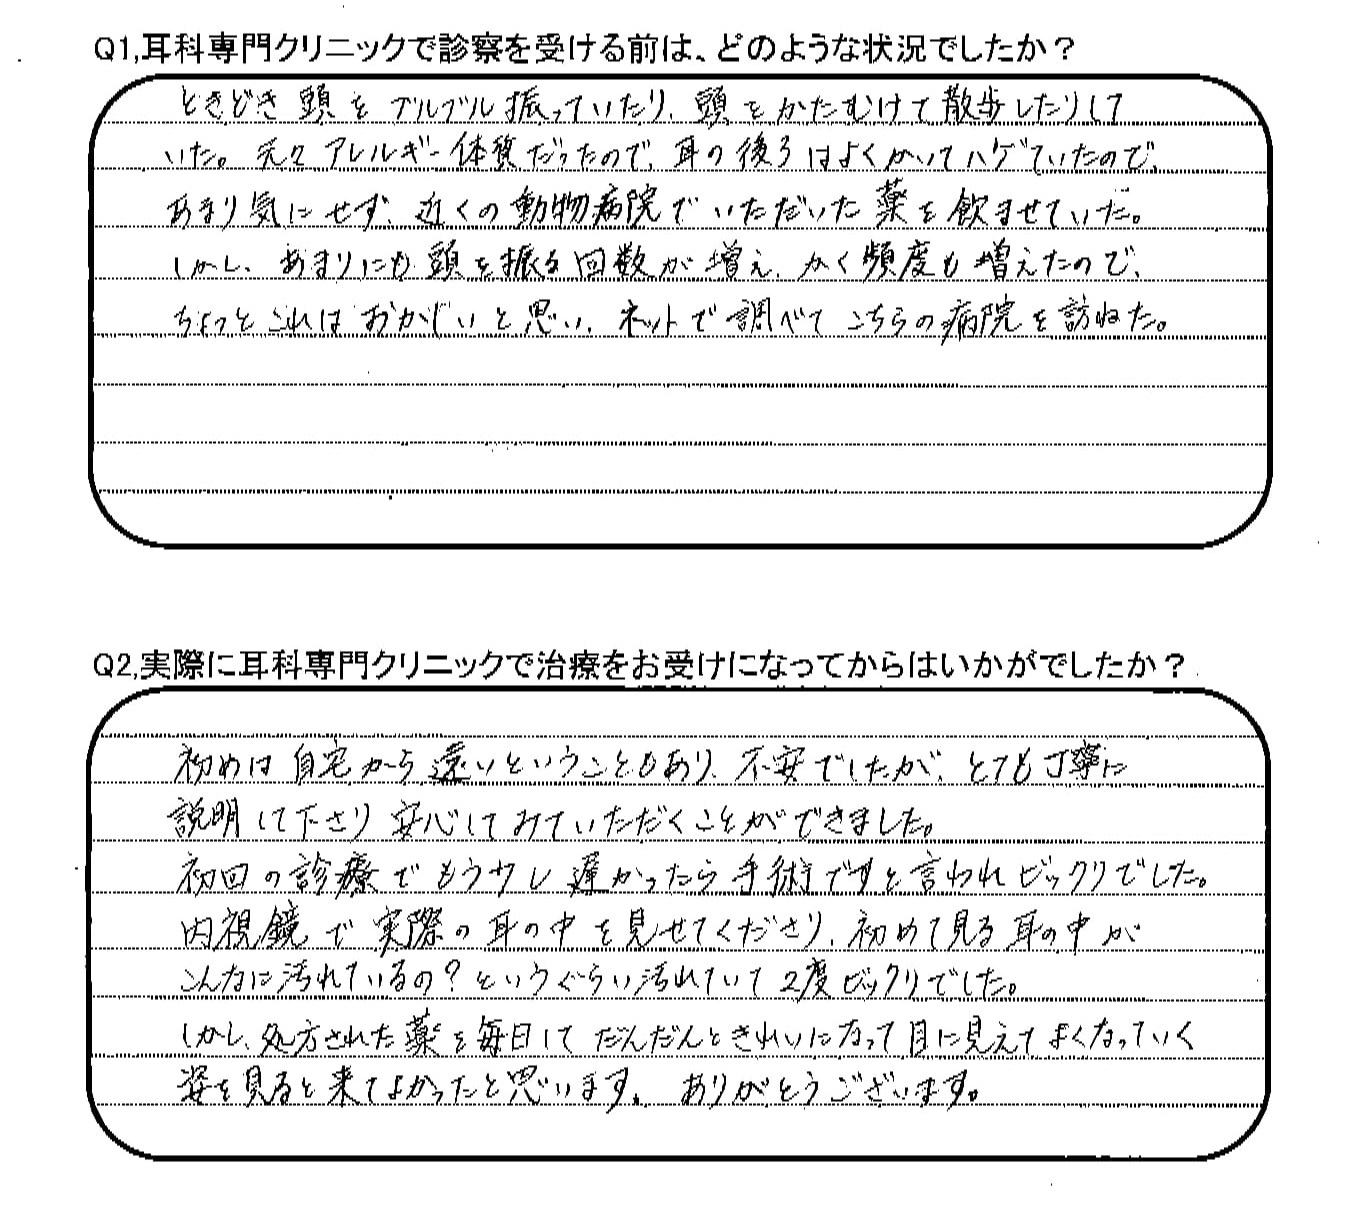 Q1,耳科専門クリニックで診察を受ける前は、どのような状況でしたか？
ときどき頭をブルブル振っていたり、頭をかたむけて散歩したりして
いた。元々アレルギー体質だったので、耳の後ろはよくかいてハゲていたので、
あまり気にせず、近くの動物病院でいただいた薬を飲ませていた。
しかし、あまりにも頭を振る回数が増え、かく頻度も増えたので、
ちょっとこれはおかしいと思い、ネットで調べてこちらの病院を訪ねた。
Q2,実際に耳科専門クリニックで治療をお受けになってからはいかがでしたか？
初めは自宅から遠いということもあり、不安でしたが、とても丁寧に
説明して下さり安心してみていただくことができました。
初回の診療でもう少し遅かったら手術ですと言われビックリでした。
内視鏡で実際の耳の中を見せてくださり、初めて見る耳の中が
こんなに汚れているの？というぐらい汚れていて2度ビックリでした。
しかし、処方された薬を毎日してだんだんときれいになって目に見えてよくなっていく
姿を見ると来てよかったと思います。ありがとうございます。